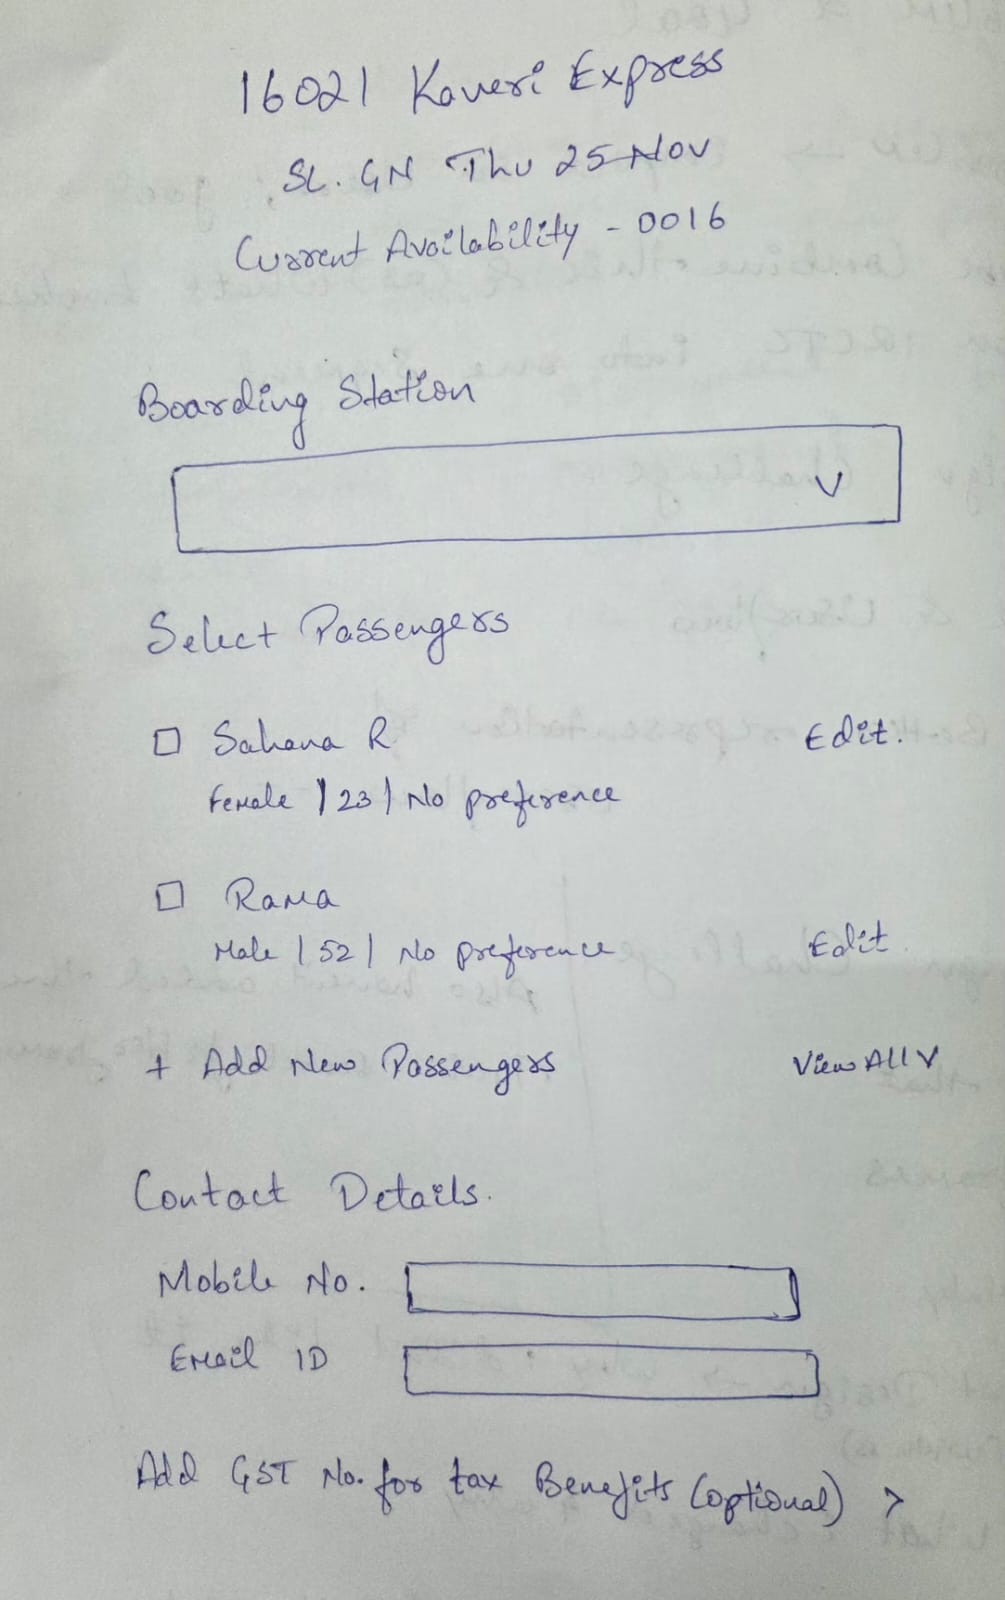 16021 Kaveri Express
SL. GN Thu 25 Nov
Current Availability - 0016
Boarding Station
Select Passengers
Sahana R Edit.
Female | 23 | No preference
Rama
Male | 52 | No preference Edit
+ Add New Passengers View All
Contact Details.
Mobile No.
Email ID
Add GST No. for tax Benefits (optional) >